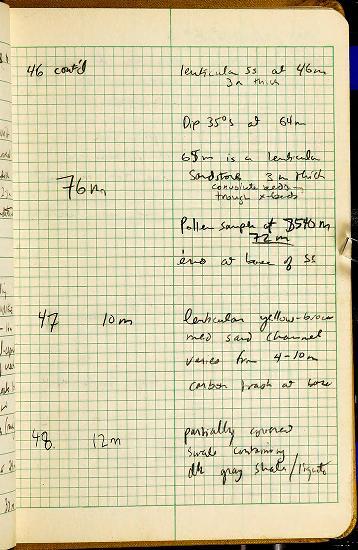 46 cont'd lenticular ss at 46m
3m thick
Dip 35°S at 64m
65m is a lenticular
76m Sandstone 3m thick
convolute beds
trough x-beds
Pollen sample at
72m
at base of SS
47 10m lenticular yellow-brown
med sand channel
varies from 4-10m
carbon trash at base
48. 12m partially covered
swale containing
dk gray shale/lignite